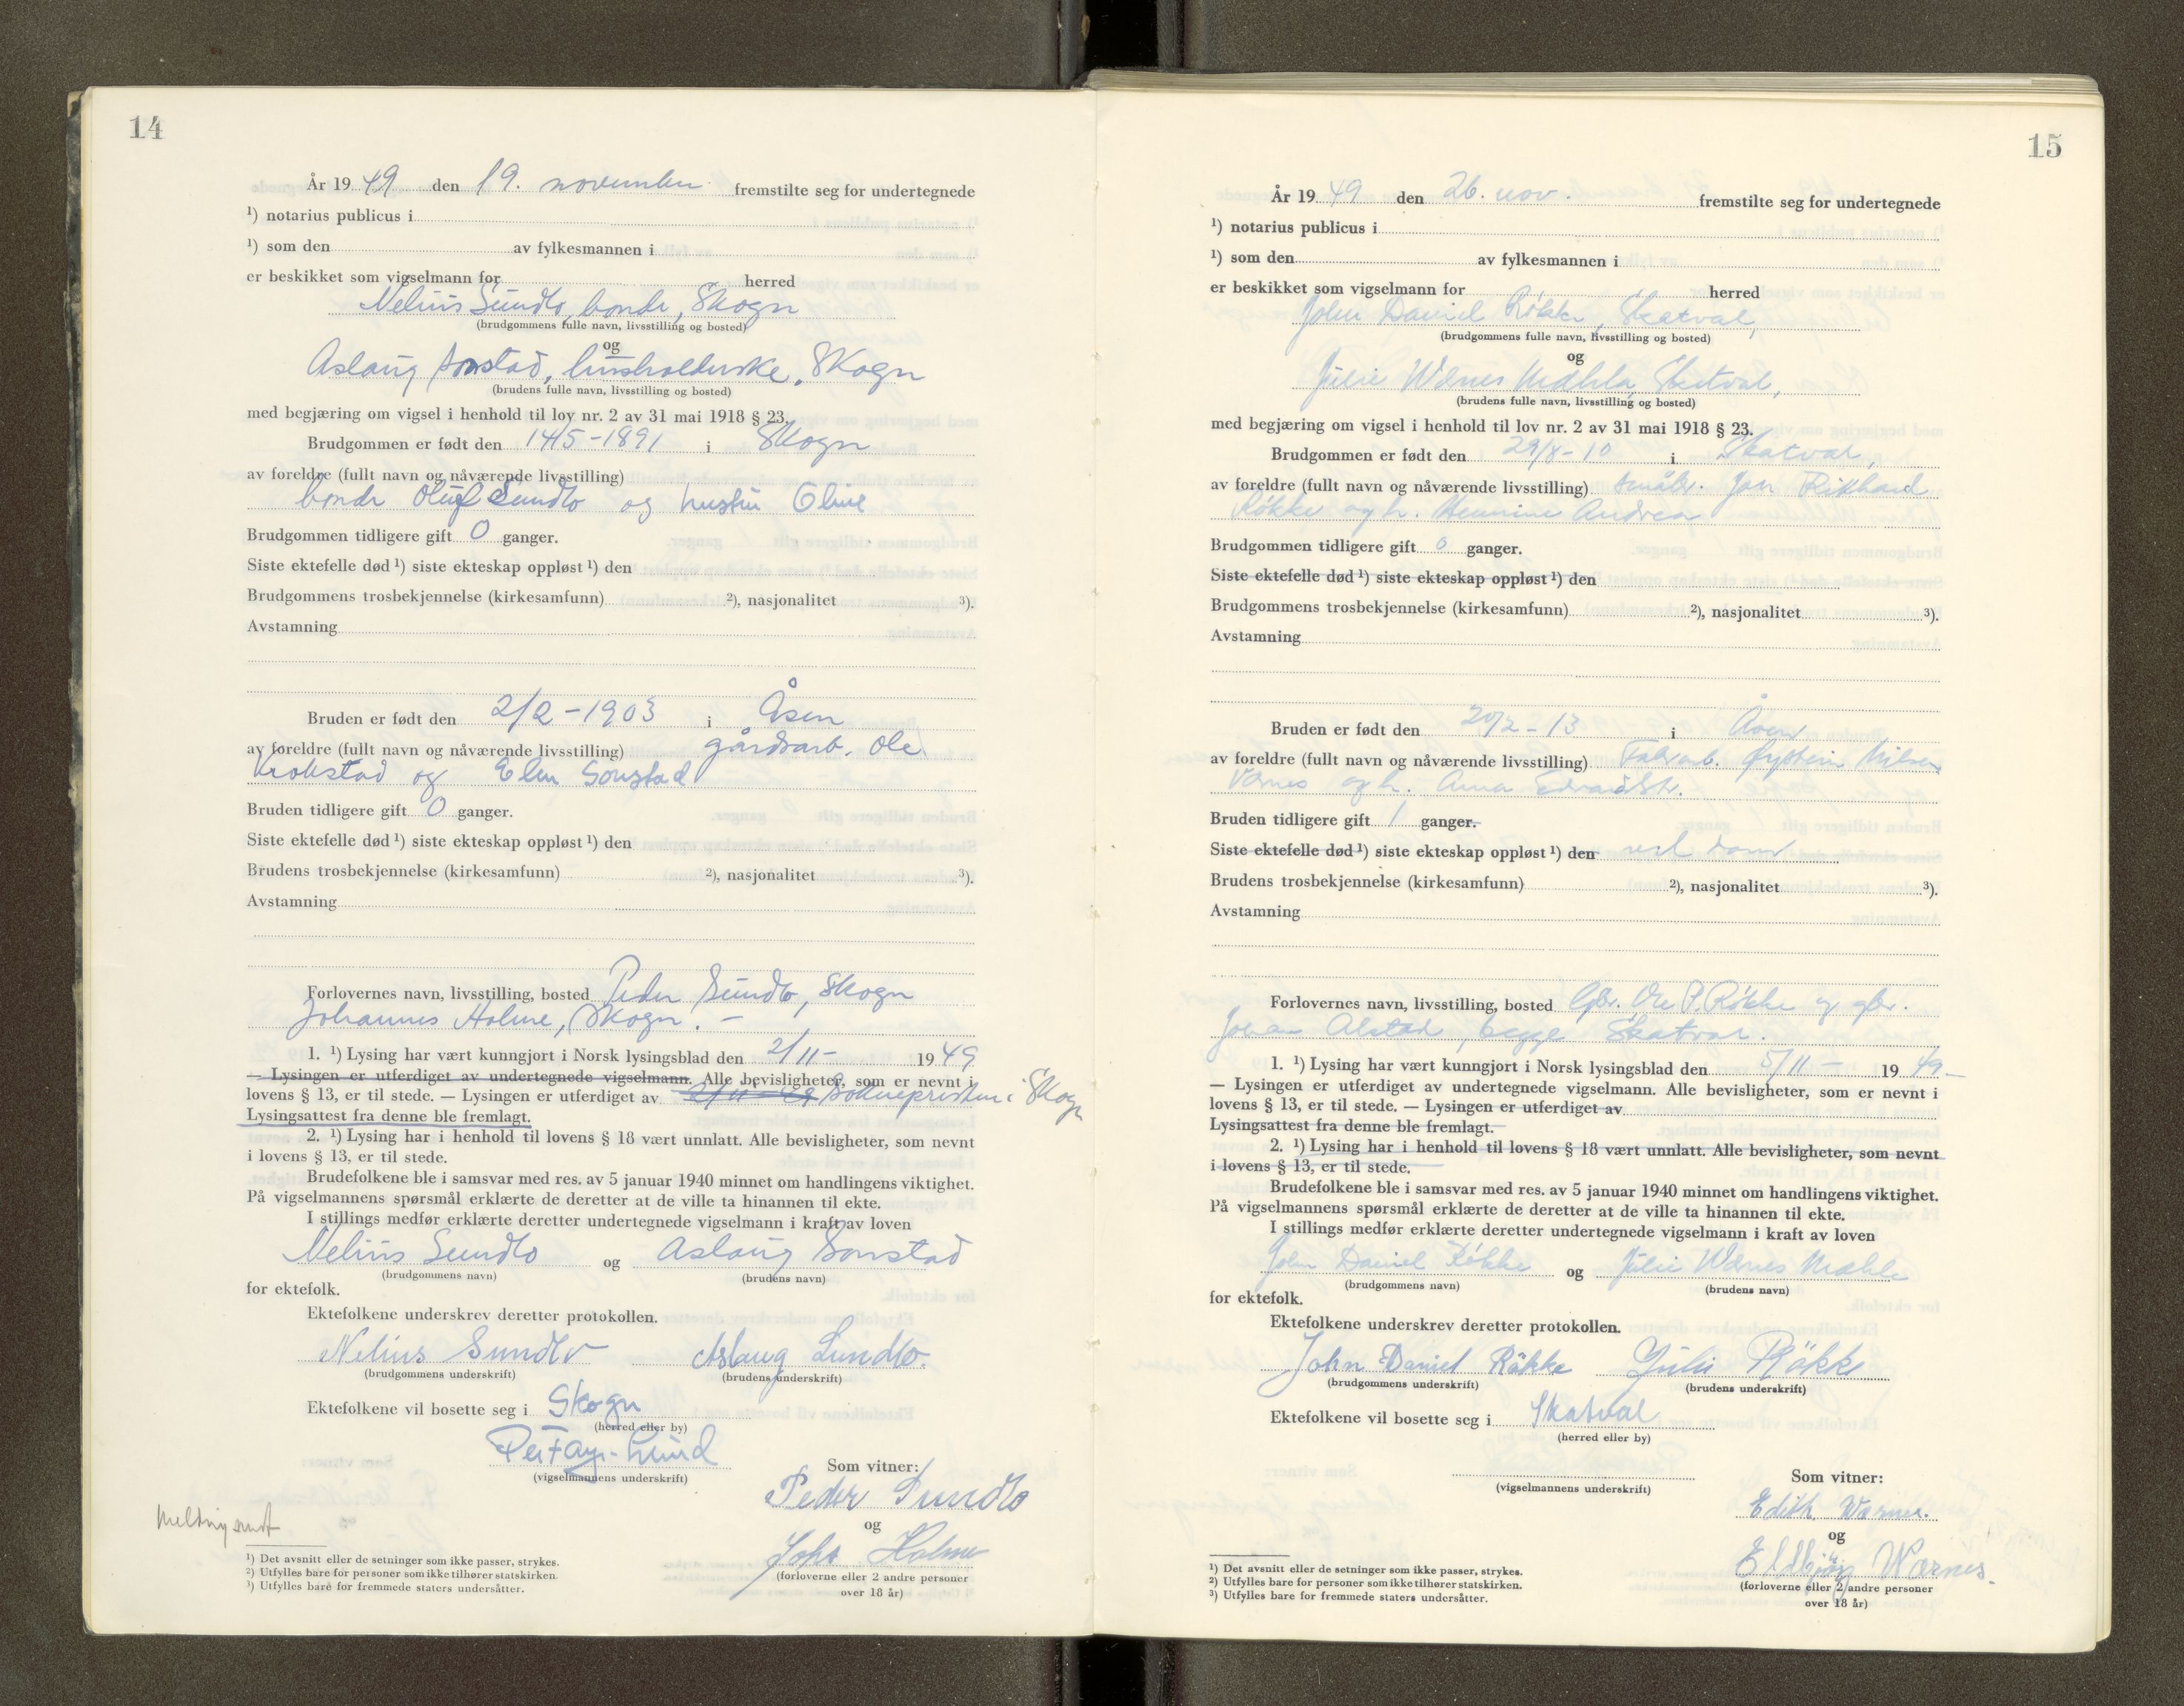 14
År 19 49 den 19. november fremstilte seg for undertegnede
¹) notarius publicus i
¹) som den av fylkesmannen i
er beskikket som vigselmann for herred
Nelius Sundlo, bonde, Skogn
(brudgommens fulle navn, livsstilling og bosted)
og
Aslaug Sonstad, husholderske, Skogn
(brudens fulle navn, livsstilling og bosted)
med begjæring om vigsel i henhold til lov nr. 2 av 31 mai 1918 § 23.
Brudgommen er født den 14/5-1891 i Skogn
av foreldre (fullt navn og nåværende livsstilling)
bonde Oluf Sundlo og hustru Oline
Brudgommen tidligere gift 0 ganger.
Siste ektefelle død ¹) siste ekteskap oppløst ¹) den
Brudgommens trosbekjennelse (kirkesamfunn) ²), nasjonalitet ³).
Avstamning
Bruden er født den 2/2-1903 i Åsen
av foreldre (fullt navn og nåværende livsstilling) gårdsarb. Ole
Krokstad og Elen Sonstad
Bruden tidligere gift 0 ganger.
Siste ektefelle død ¹) siste ekteskap oppløst ¹) den
Brudens trosbekjennelse (kirkesamfunn) ²), nasjonalitet ³).
Avstamning
Forlovernes navn, livsstilling, bosted Peder Sundlo, Skogn
Johannes Holme, Skogn. -
1. ¹) Lysing har vært kunngjort i Norsk lysingsblad den 2/11- 19 49
— Lysingen er utferdiget av undertegnede vigselmann. Alle bevisligheter, som er nevnt i
lovens § 13, er til stede. — Lysingen er utferdiget av 2/11-49 Sokneprosten i Skogn
Lysingsattest fra denne ble fremlagt.
2. ¹) Lysing har i henhold til lovens § 18 vært unnlatt. Alle bevisligheter, som nevnt
i lovens § 13, er til stede.
Brudefolkene ble i samsvar med res. av 5 januar 1940 minnet om handlingens viktighet.
På vigselmannens spørsmål erklærte de deretter at de ville ta hinannen til ekte.
I stillings medfør erklærte deretter undertegnede vigselmann i kraft av loven
Nelius Sundlo og Aslaug Sonstad
(brudgommens navn) (brudens navn)
for ektefolk.
Ektefolkene underskrev deretter protokollen.
Nelius Sundlo Aslaug Sundlo.
(brudgommens underskrift) (brudens underskrift)
Ektefolkene vil bosette seg i Skogn
(herred eller by)
Lund
(vigselmannens underskrift)
Som vitner:
Peder Sundlo
og
Joh. Holme
(forloverne eller 2 andre personer
over 18 år)
Melding sendt
¹) Det avsnitt eller de setninger som ikke passer, strykes.
²) Utfylles bare for personer som ikke tilhører statskirken.
³) Utfylles bare for fremmede staters undersåtter.
15
År 19 49 den 26. nov. fremstilte seg for undertegnede
¹) notarius publicus i
¹) som den av fylkesmannen i
er beskikket som vigselmann for herred
John Daniel Røkke, Skatval,
(brudgommens fulle navn, livsstilling og bosted)
og
Julie Wærnes Mæhle, Skatval,
(brudens fulle navn, livsstilling og bosted)
med begjæring om vigsel i henhold til lov nr. 2 av 31 mai 1918 § 23.
Brudgommen er født den 29/8-10 i Skatval,
av foreldre (fullt navn og nåværende livsstilling) småbr. Jon Rikhard
Røkke og h. Andrea
Brudgommen tidligere gift 0 ganger.
Siste ektefelle død ¹) siste ekteskap oppløst ¹) den
Brudgommens trosbekjennelse (kirkesamfunn) ²), nasjonalitet ³).
Avstamning
Bruden er født den 20/2-13 i Åsen
av foreldre (fullt navn og nåværende livsstilling) Fabr.arb. Øystein Nilsen
Værnes og h. Anna
Bruden tidligere gift 1 ganger.
Siste ektefelle død ¹) siste ekteskap oppløst ¹) den ved dom
Brudens trosbekjennelse (kirkesamfunn) ²), nasjonalitet ³).
Avstamning
Forlovernes navn, livsstilling, bosted Gbr. Ole P. Røkke og gbr.
Johan Alstad, begge Skatval.
1. ¹) Lysing har vært kunngjort i Norsk lysingsblad den 5/11 - 19 49.-
— Lysingen er utferdiget av undertegnede vigselmann. Alle bevisligheter, som er nevnt i
lovens § 13, er til stede. — Lysingen er utferdiget av
Lysingsattest fra denne ble fremlagt.
2. ¹) Lysing har i henhold til lovens § 18 vært unnlatt. Alle bevisligheter, som nevnt
i lovens § 13, er til stede.
Brudefolkene ble i samsvar med res. av 5 januar 1940 minnet om handlingens viktighet.
På vigselmannens spørsmål erklærte de deretter at de ville ta hinannen til ekte.
I stillings medfør erklærte deretter undertegnede vigselmann i kraft av loven
John Daniel Røkke og Julie Wærnes Mæhle
(brudgommens navn) (brudens navn)
for ektefolk.
Ektefolkene underskrev deretter protokollen.
John Daniel Røkke Julie Røkke
(brudgommens underskrift) (brudens underskrift)
Ektefolkene vil bosette seg i Skatval
(herred eller by)
(vigselmannens underskrift)
Som vitner:
Edith Wærnes.
og
Eldbjørg Wærnes.
(forloverne eller 2 andre personer
over 18 år)
¹) Det avsnitt eller de setninger som ikke passer, strykes.
²) Utfylles bare for personer som ikke tilhører statskirken.
³) Utfylles bare for fremmede staters undersåtter.